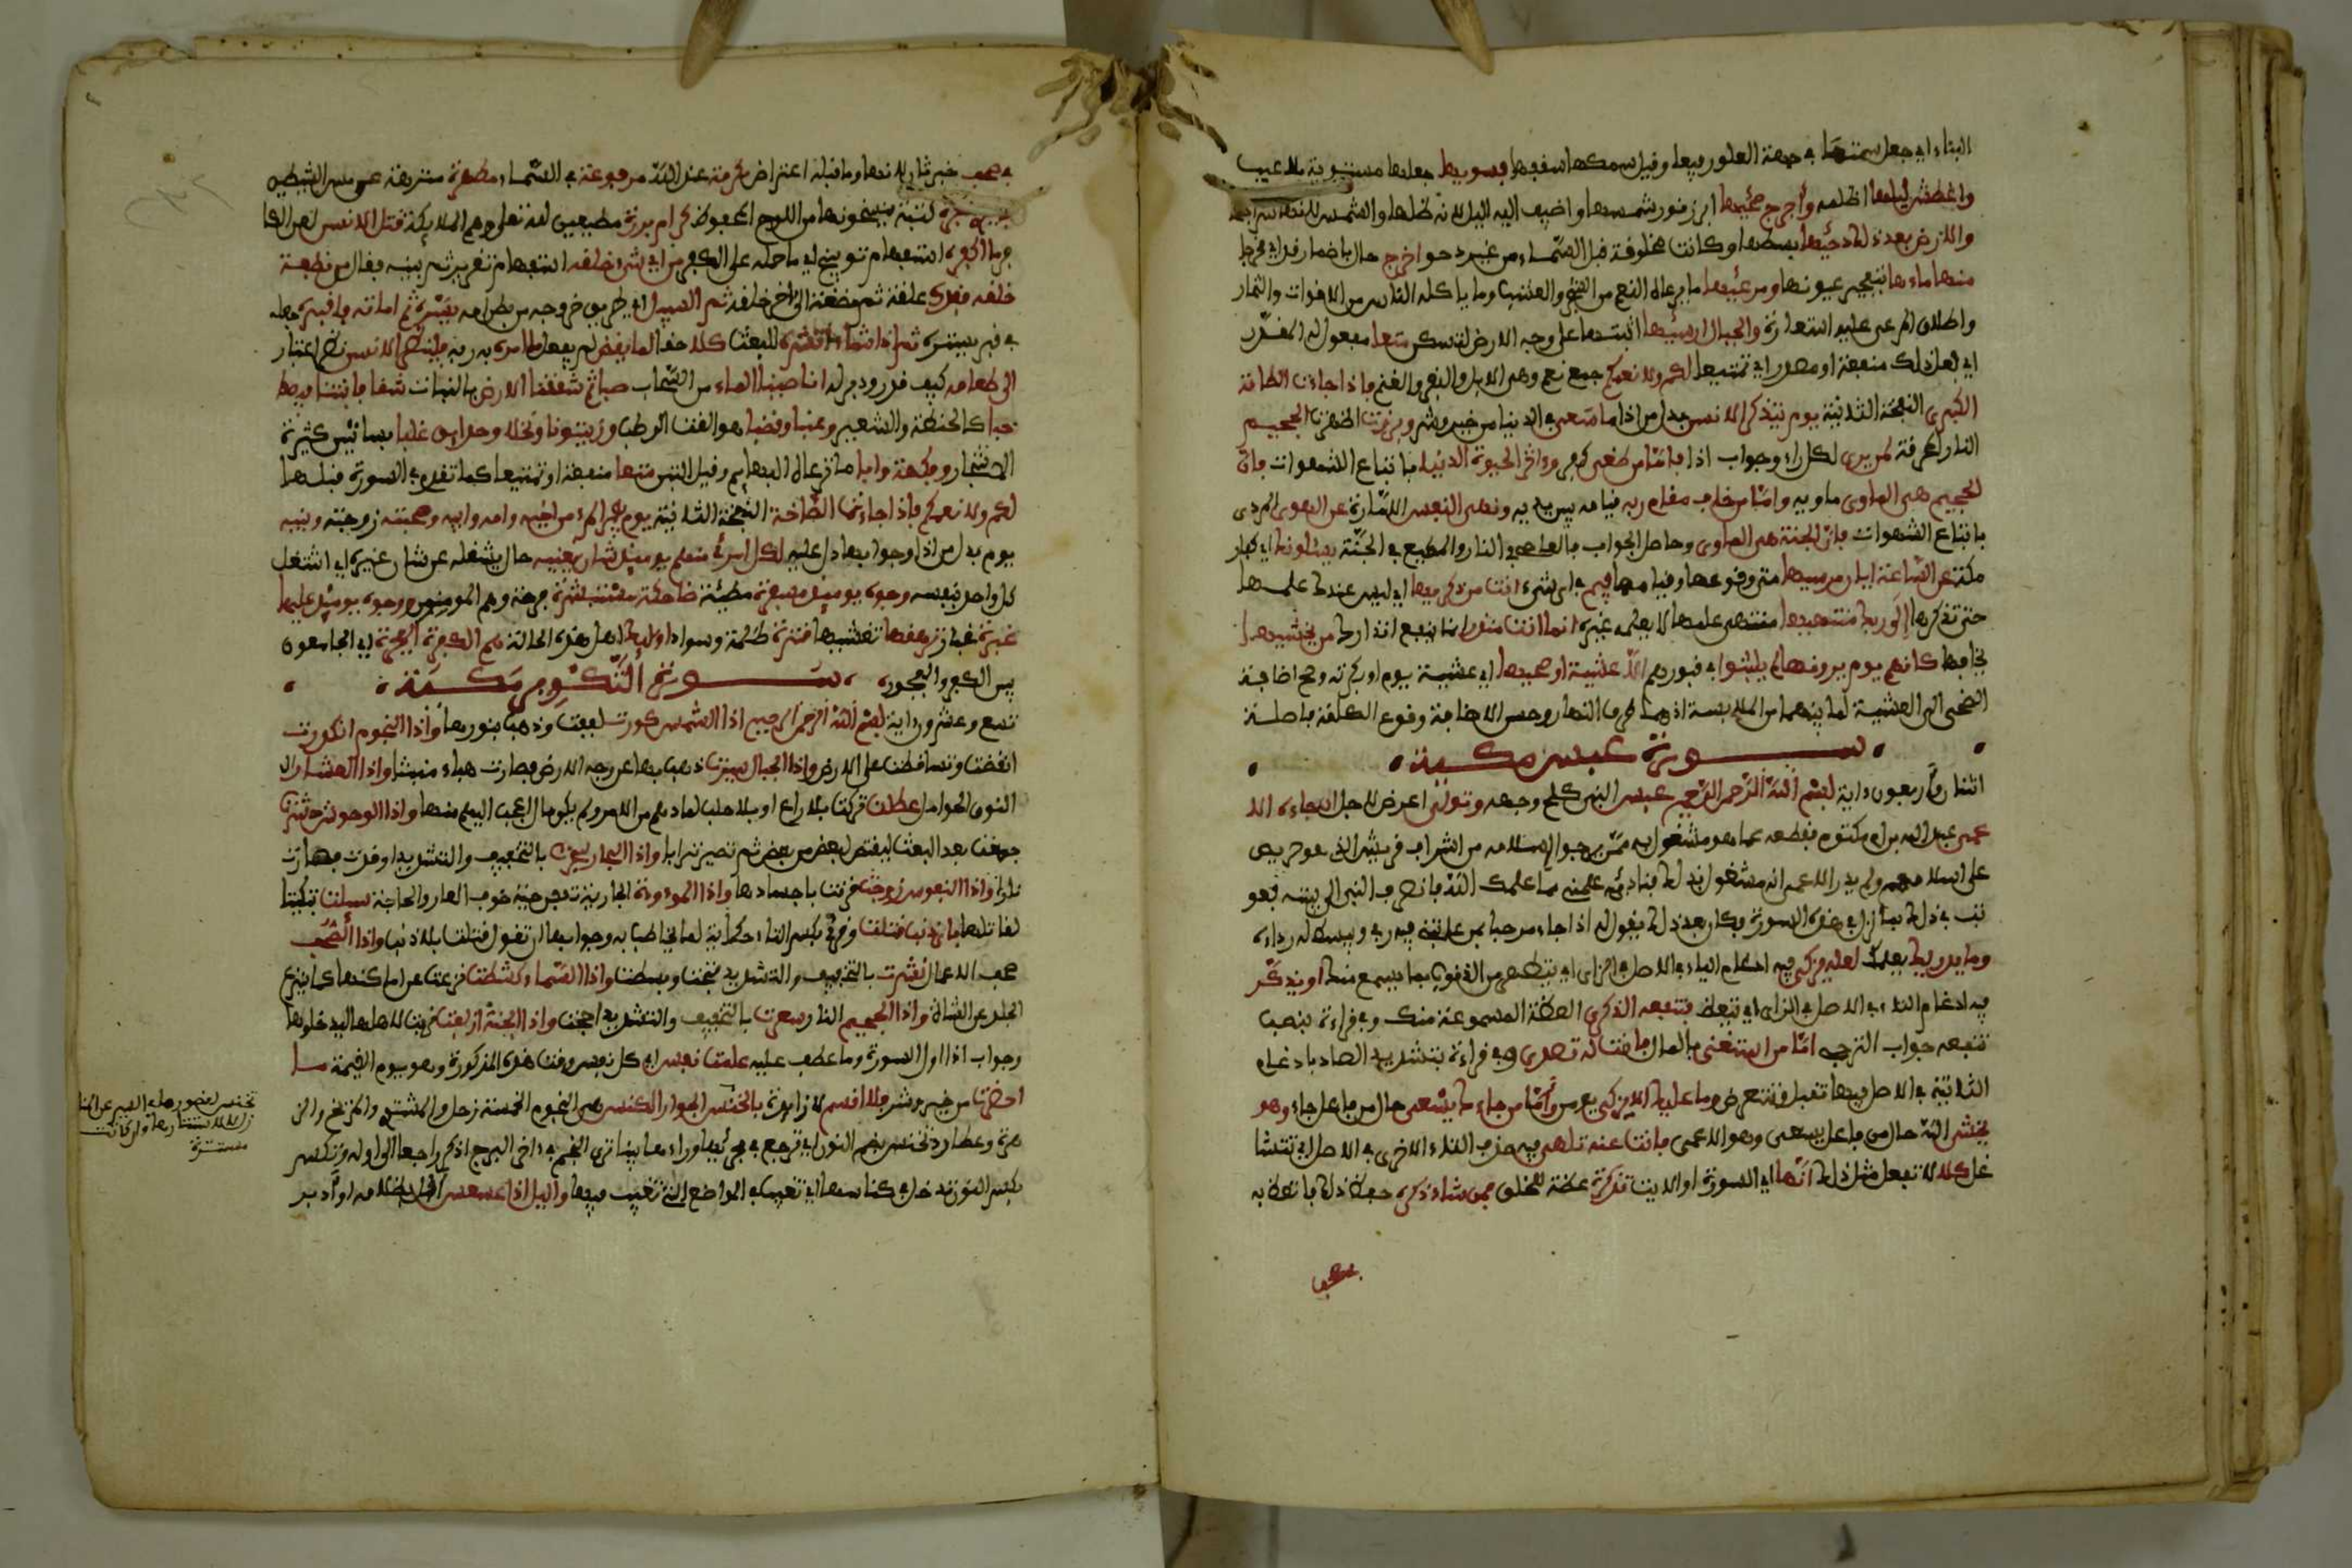 البناء اي جعل سمتها في جهة العلو رفيعا وقيل سمكها سقفها فسويها جعلها مستوية بلا عيب
واغطش ليلها اظلمه وأخرج ضحيها ابرز نور شمسها واضيف اليه اليل لانه ظلها والشمس لانها سراجها
والارض بعد ذلك دحيها بسطها وكانت مخلوقة قبل السماء من غير دحو اخرج حال باضمار قد اي مخرجا
منها ماءها بتفجير عيونها ومرعيها ما ترعاه النعم من الشجر والعشب وما ياكله الناس من الاقوات والثمار
واطلاق المرعى عليه استعارة والجبال ارسيها اثبتها على وجه الارض لتسكن متعا مفعول له لمقدر
اي فعل ذلك منفعة او مصدر اي تمتيعا لكم ولانعمكم جمع نعم وهي الابل والبقر والغنم فاذا جاءت الطامة
الكبرى النفخة الثانية يوم يتذكر الانسن بدل من اذا ما سعى في الدنيا من خير وشر وبرزت اظهرت الجحيم
النار المحرقة لمن يرى لكل راء وجواب اذا فاما من طغى كفر وءاثر الحيوة الدنيا باتباع الشهوات فان
الجحيم هي الماوى ماويه واما من خاف مقام ربه قيامه بين يديه ونهى النفس الامارة عن الهوى المردي
باتباع الشهوات فان الجنة هي الماوى وحاصل الجواب فالعاصي في النار والمطيع في الجنة يسئلونك اي كفار
مكة عن الساعة ايان مرسيها متى وقوعها وقيامها فيم في اي شيء انت من ذكريها اي ليس عندك علمها
حتى تذكرها إلى ربك منتهيها منتهى علمها لا يعلمه غيره انما انت منذر انما ينفع انذارك من يخشيها
يخافها كانهم يوم يرونها لم يلبثوا في قبورهم الا عشية او ضحيها اي عشية يوم او بكرته وصح اضافة
الضحى الى العشية لما بينهما من الملابسة اذ هما طرفا النهار وحسن الاضافة وقوع الكلمة فاصلة
سورة عبس مكية
اثنان وأربعون ءاية بسم الله الرحمن الرحيم عبس النبي كلح وجهه وتولى اعرض لاجل ان جاءه الا
عمى عبد الله بن ام مكتوم فقطعه عما هو مشغول به ممن يرجو اسلامه من اشراف قريش الذي هو حريص
على اسلامهم ولم يدر الاعمى انه مشغول بذلك فناديه علمني مما علمك الله فانصرف النبي الى بيته فعو
تب في ذلك بما نزل في هذه السورة فكان بعد ذلك يقول له اذا جاء مرحبا بمن عاتبني فيه ربي ويبسط له رداءه
وما يدريك يعلمك لعله يزكى فيه ادغام التاء في الاصل في الزاي اي يتطهر من الذنوب بما يسمع منك او يذكر
فيه ادغام التاء في الاصل في الذال اي يتعظ فتنفعه الذكرى العظة المسموعة منك وفي قراءة بنصب
تنفعه جواب الترجي اما من استغنى بالمال فانت له تصدى وفي قراءة بتشديد الصاد بادغام
الثانية في الاصل فيها تقبل وتتعرض وما عليك الا يزكى يومن وأما من جاءك يسعى حال من فاعل جاء وهو
يخشى الله حال من فاعل يسعى وهو الاعمى فانت عنه تلهى فيه حذف التاء الاخرى في الاصل اي تتشا
غل كلا لا تفعل مثل ذلك انها اي السورة او الايت تذكرة عظة للخلق فمن شاء ذكره حفظ ذلك فاتعظ به
في صحف خبر ثان لانها وما قبله اعتراض مكرمة عند الله مرفوعة في السماء مطهرة منزهة عن مس الشيطين
بايدي سفرة كتبة ينسخونها من اللوح المحفوظ كرام بررة مطيعين لله تعلى وهم الملائكة قتل الانسن لعن الكا
فر ما اكفره استفهام توبيخ اي ما حمله على الكفر من اي شيء خلقه استفهام تقرير ثم بينه فقال من نطفة
خلقه فقدره علقة ثم مضغة الى ءاخر خلقه ثم السبيل اي طريق خروجه من بطن امه يسره ثم اماته فاقبره جعله
في قبر يستره ثم إذا شاء انشره للبعث كلا حقا لما يقض لم يفعل ما امره به ربه فلينظر الانسن نظر اعتبار
الى طعامه كيف قدر ودبر له انا صببنا الماء من السحاب صبا ثم شققنا الارض بالنبات شقا فانبتنا فيها
حبا كالحنطة والشعير وعنبا وقضبا هو القت الرطب وزيتونا ونخلا وحدايق غلبا بساتين كثيرة
الاشجار وفكهة وابا ما ترعاه البهايم وقيل التبن متعا منفعة او تمتيعا كما تقدم في السورة قبلها
لكم ولانعمكم فاذا جاءت الصاخة النفخة الثانية يوم يفر المرء من اخيه وامه وابيه وصحبته زوجته وبنيه
يوم بدل من اذا وجوابها دل عليه لكل امرئ منهم يوميذ شان يغنيه حال يشغله عن شان غيره اي اشتغل
كل واحد بنفسه وجوه يوميذ مسفرة مضيئة ضاحكة مستبشرة فرحة وهم المومنون ووجوه يوميذ عليها
غبرة غبار ترهقها تغشيها قترة ظلمة وسواد اوليك اهل هذه الحالة هم الكفرة الفجرة اي الجامعون
بين الكفر والفجور سورة التكوير مكية
تسع وعشرون ءاية بسم الله الرحمن الرحيم اذا الشمس كورت لففت وذهب بنورها واذا النجوم انكدرت
انقضت وتساقطت على الارض واذا الجبال سيرت ذهب بها عن وجه الارض فصارت هباء منبثا واذا العشار
النوق الحوامل عطلت تركت بلا راع او بلا حلب لما دهاهم من الامر ولم يكن مال اعجب اليهم منها واذا الوحوش حشرت
جمعت بعد البعث ليقتص لبعض من بعض ثم تصير ترابا واذا البحار سجرت بالتخفيف والتشديد اوقدت فصارت
نارا واذا النفوس زوجت قرنت باجسادها واذا الموءودة الجارية تدفن حية خوف العار والحاجة سيلت تبكيتا
لقاتلها باي ذنب قتلت وقرئ بكسر التاء حكاية لما تخاطب به وجوابها ان تقول قتلت بلا ذنب واذا الصحف
صحف الاعمال نشرت بالتخفيف والتشديد فتحت وبسطت واذا السماء كشطت نزعت عن اماكنها كما ينزع
الجلد عن الشاة واذا الجحيم النار سعرت بالتخفيف والتشديد اججت واذا الجنة ازلفت قربت لاهلها ليدخلوها
وجواب اذا اول السورة وما عطف عليه علمت نفس اي كل نفس وقت هذه المذكورة وهو يوم القيمة ما
احضرت من خير وشر فلا اقسم لا زايدة بالخنس الجوار الكنس هي النجوم الخمسة زحل والمشتري والمريخ والز
هرة وعطارد تخنس بضم النون اي ترجع في مجريها وراءها بينا ترى النجم في ءاخر البرج اذ كر راجعا الى اوله وتكنس
بكسر النون تدخل في كناسها اي تغيب في المواضع التي تغيب فيها واليل اذا عسعس اقبل بظلامه او أدبر